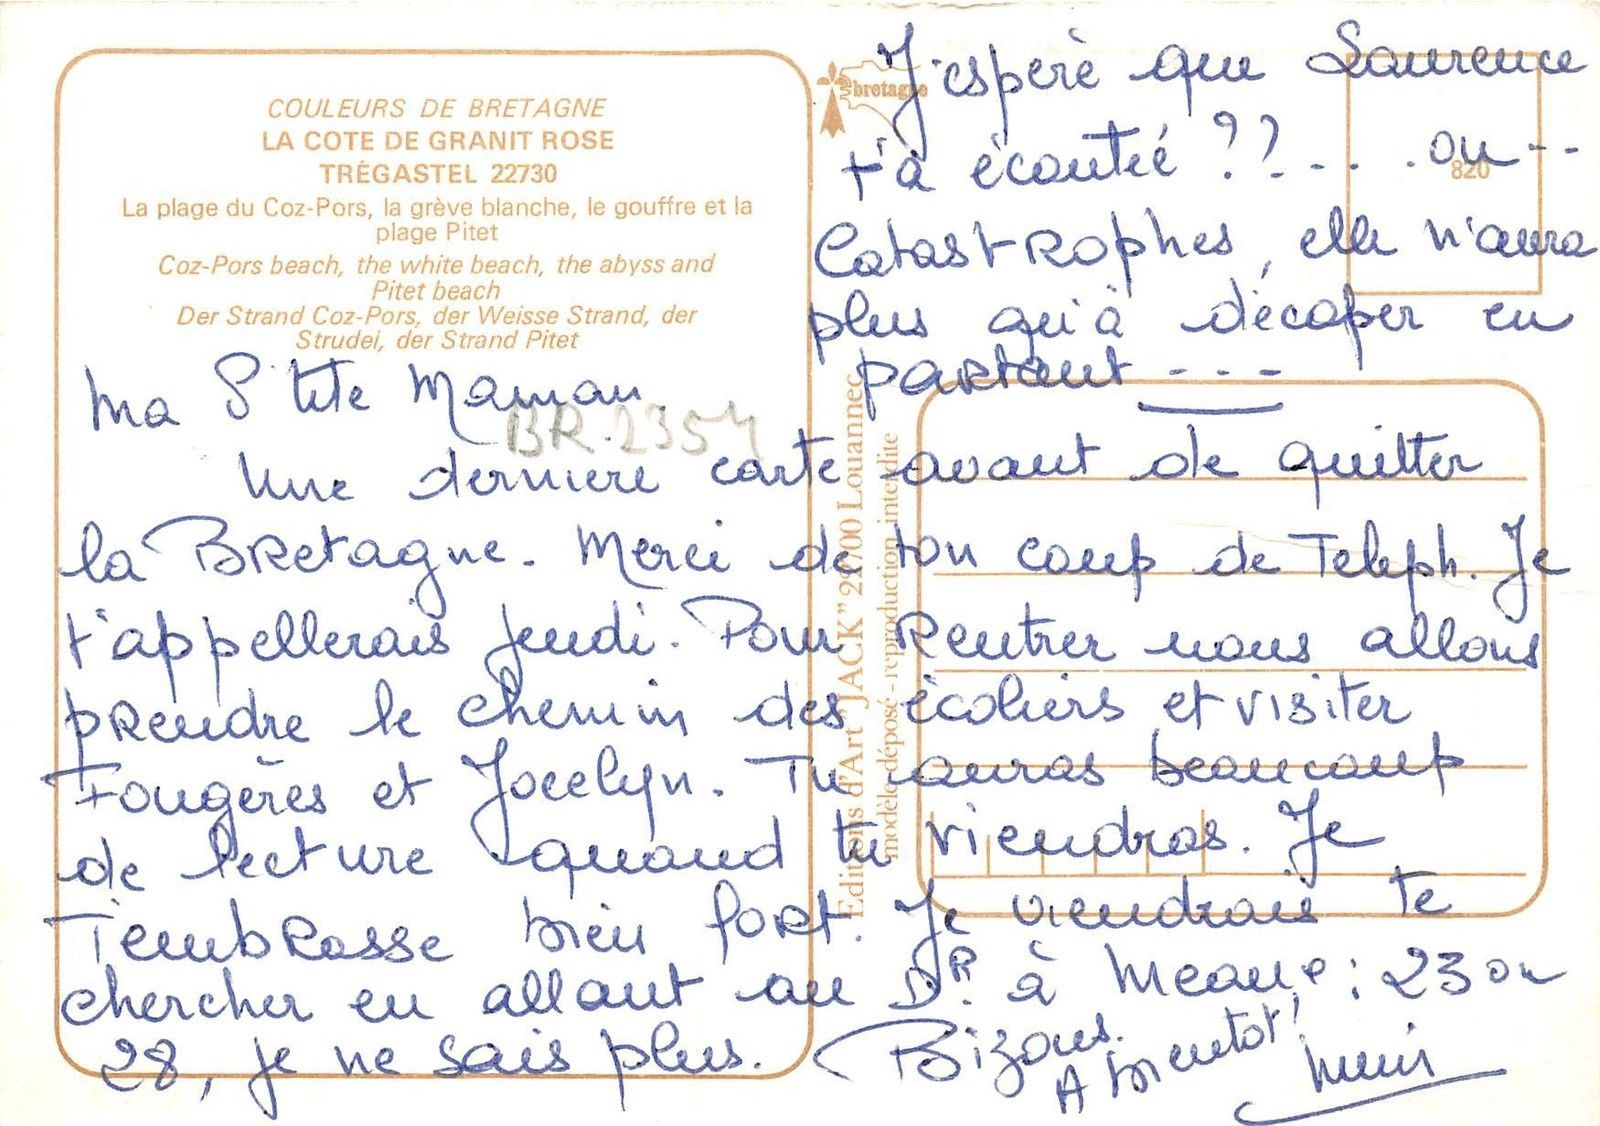 COULEURS DE BRETAGNE
LA COTE DE GRANIT ROSE
TRÉGASTEL 22730
La plage du Coz-Pors, la grève blanche, le gouffre et la
plage Pitet
Coz-Pors beach, the white beach, the abyss and
Pitet beach
Der Strand Coz-Pors, der Weisse Strand, der
Strudel, der Strand Pitet
bretagne
820
J'espère que Laurence
t'a écoutée ??.... ou --
Catastrophes, elle n'aura
plus qu'à décaper en
partant ---
Ma P'tite Maman.
BR.2354
Une derniere carte avant de quitter
la Bretagne. Merci de ton coup de Teleph. Je
t'appellerais jeudi. Pour Rentrer nous allons
prendre le chemin des écoliers et visiter
Fougères et Jocelyn. Tu auras beaucoup
de lecture quand tu viendras. Je
T'embrasse bien fort. Je viendrais te
chercher en allant au Dr. à Meaux : 23 ou
28, je ne sais plus. Bizous.
A bientot!
Editions d'Art "JACK" 22700 Louannec
modèle déposé - reproduction interdite